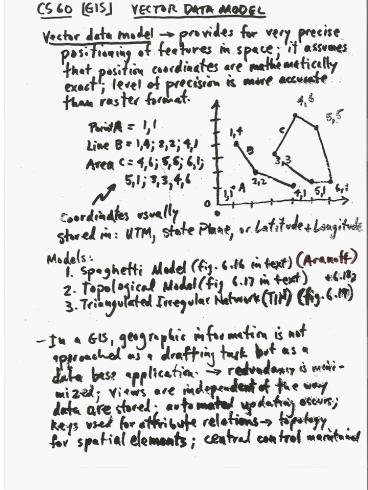 CS 60 [GIS] VECTOR DATA MODEL
Vector data model → provides for very precise
positioning of features in space; it assumes
that position coordinates are mathematically
exact; level of precision is more accurate
than raster format.
Point A = 1,1
Line B = 1,4; 2,2; 4,1
Area C = 4,6; 5,5; 6,1;
5,1; 3,3; 4,6
Coordinates usually
stored in: UTM, State Plane, or Latitude + Longitude
4,6
5,5
1,4
C
B
3,3
2,2
1,1 • A
4,1
5,1
6,1
0
Models:
1. Spaghetti Model (fig. 6.16 in text) (Aranoff)
2. Topological Model (fig 6.17 in text) +6.18
3. Triangulated Irregular Network (TIN) (fig. 6.19)
– In a GIS, geographic information is not
approached as a drafting task but as a
data base application. → redundancy is mini-
mized; views are independent of the way
data are stored; automated updating occurs;
keys used for attribute relations → topology
for spatial elements; central control maintained